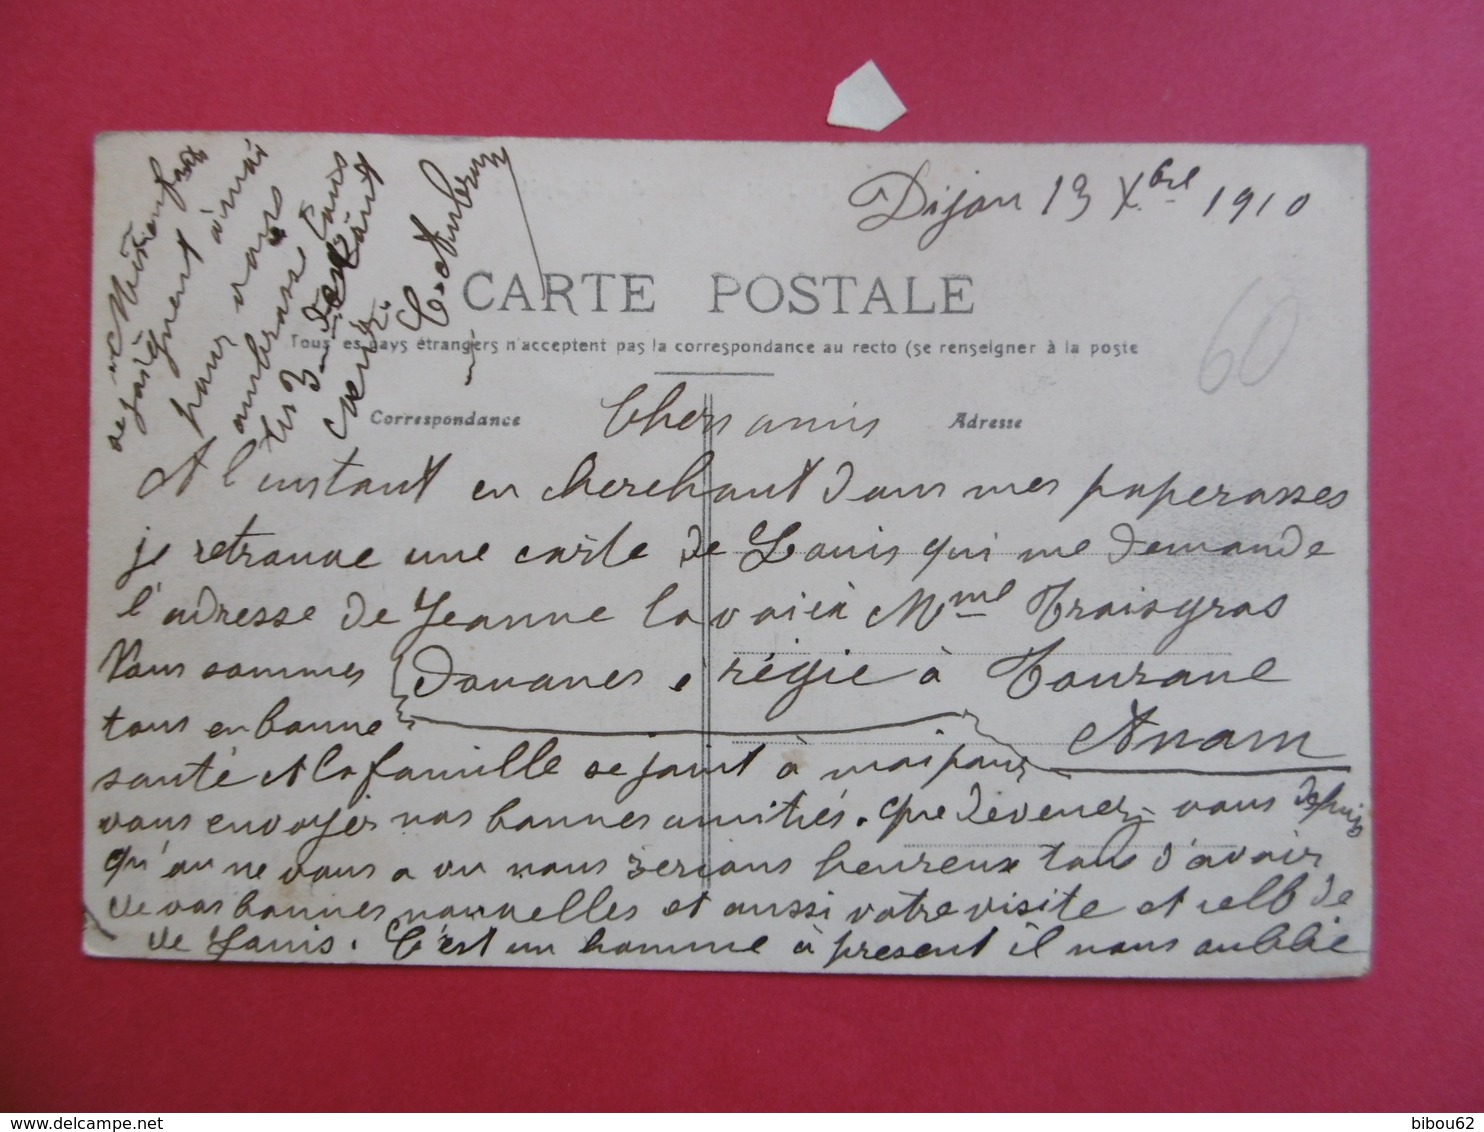 Dijon 13 Xbre 1910
CARTE POSTALE
Tous les pays étrangers n'acceptent pas la correspondance au recto (se renseigner à la poste
Correspondance
Adresse
60
Chers amis
A l'instant en cherchant dans mes paperasses
je retrouve une carte de Louis qui me demande
l'adresse de Jeanne la voici Mme Troisgros
Douanes régie à Tourane
Anam
Nous sommes
tous en bonne
santé et la famille se joint à moi pour
vous envoyer nos bonnes amitiés. que devenez-vous depuis
qu'on ne vous a vu nous serions heureux tous d'avoir
de vos bonnes nouvelles et aussi votre visite et celle de
de Louis. C'est un homme à présent il nous oublie
se joignent à moi
pour vous
embrasser
tous 3 de
cœur
bibou62